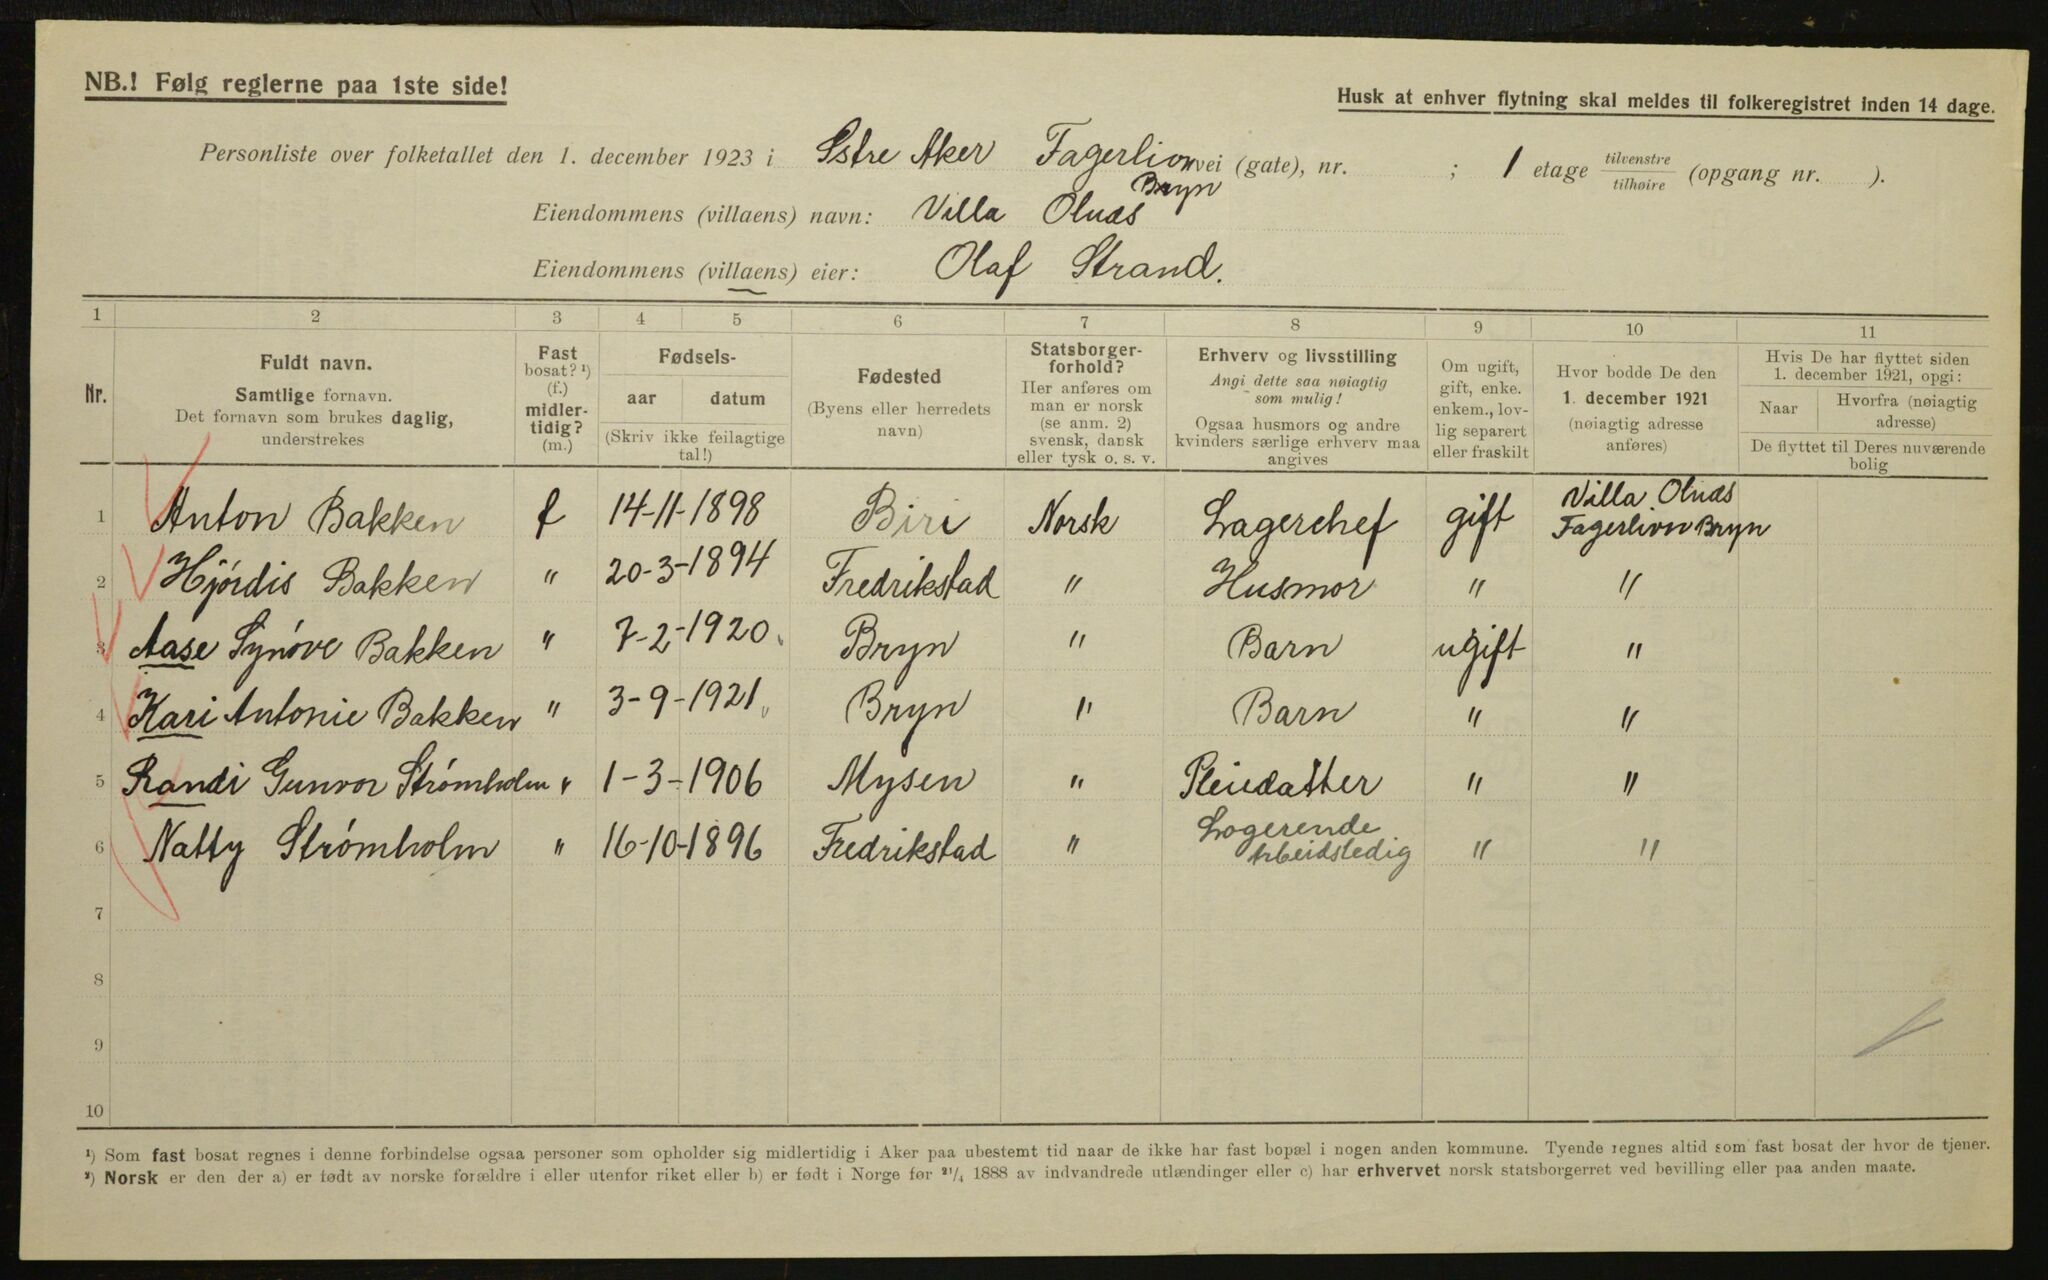 NB.! Følg reglerne paa 1ste side!
Husk at enhver flytning skal meldes til folkeregistret inden 14 dage.
Personliste over folketallet den 1. december 1923 i Østre Aker Fagerlivn vei (gate), nr. ; 1 etage tilvenstre / tilhøire (opgang nr. ).
Bryn
Eiendommens (villaens) navn: Villa Olnæs
Eiendommens (villaens) eier: Olaf Strand.
1 2 3 4 5 6 7 8 9 10 11
Nr.
Fuldt navn.
Samtlige fornavn.
Det fornavn som brukes daglig,
understrekes
Fast
bosat? ¹)
(f.)
midler-
tidig?
(m.)
Fødsels-
aar datum
(Skriv ikke feilagtige
tal!)
Fødested
(Byens eller herredets
navn)
Statsborger-
forhold?
Her anføres om
man er norsk
(se anm. 2)
svensk, dansk
eller tysk o. s. v.
Erhverv og livsstilling
Angi dette saa nøiagtig
som mulig!
Ogsaa husmors og andre
kvinders særlige erhverv maa
angives
Om ugift,
gift, enke.
enkem., lov-
lig separert
eller fraskilt
Hvor bodde De den
1. december 1921
(nøiagtig adresse
anføres)
Hvis De har flyttet siden
1. december 1921, opgi:
Naar Hvorfra (nøiagtig
adresse)
De flyttet til Deres nuværende
bolig
1 Anton Bakken f 14-11-1898 Biri Norsk Lagerchef gift Villa Olnæs
Fagerlivn Bryn
2 Hjördis Bakken " 20-3-1894 Fredrikstad " Husmor " "
3 Aase Synöve Bakken " 7-2-1920 Bryn " Barn ugift "
4 Kari Antonie Bakken " 3-9-1921 Bryn " Barn " "
5 Randi Gunvor Strømholm " 1-3-1906 Mysen " Pleiedatter " "
6 Natty Strømholm " 16-10-1896 Fredrikstad " Logerende
Arbeidsledig " "
7
8
9
10
¹) Som fast bosat regnes i denne forbindelse ogsaa personer som opholder sig midlertidig i Aker paa ubestemt tid naar de ikke har fast bopæl i nogen anden kommune. Tyende regnes altid som fast bosat der hvor de tjener.
²) Norsk er den der a) er født av norske forældre i eller utenfor riket eller b) er født i Norge før ²¹/₄ 1888 av indvandrede utlændinger eller c) har erhvervet norsk statsborgerret ved bevilling eller paa anden maate.